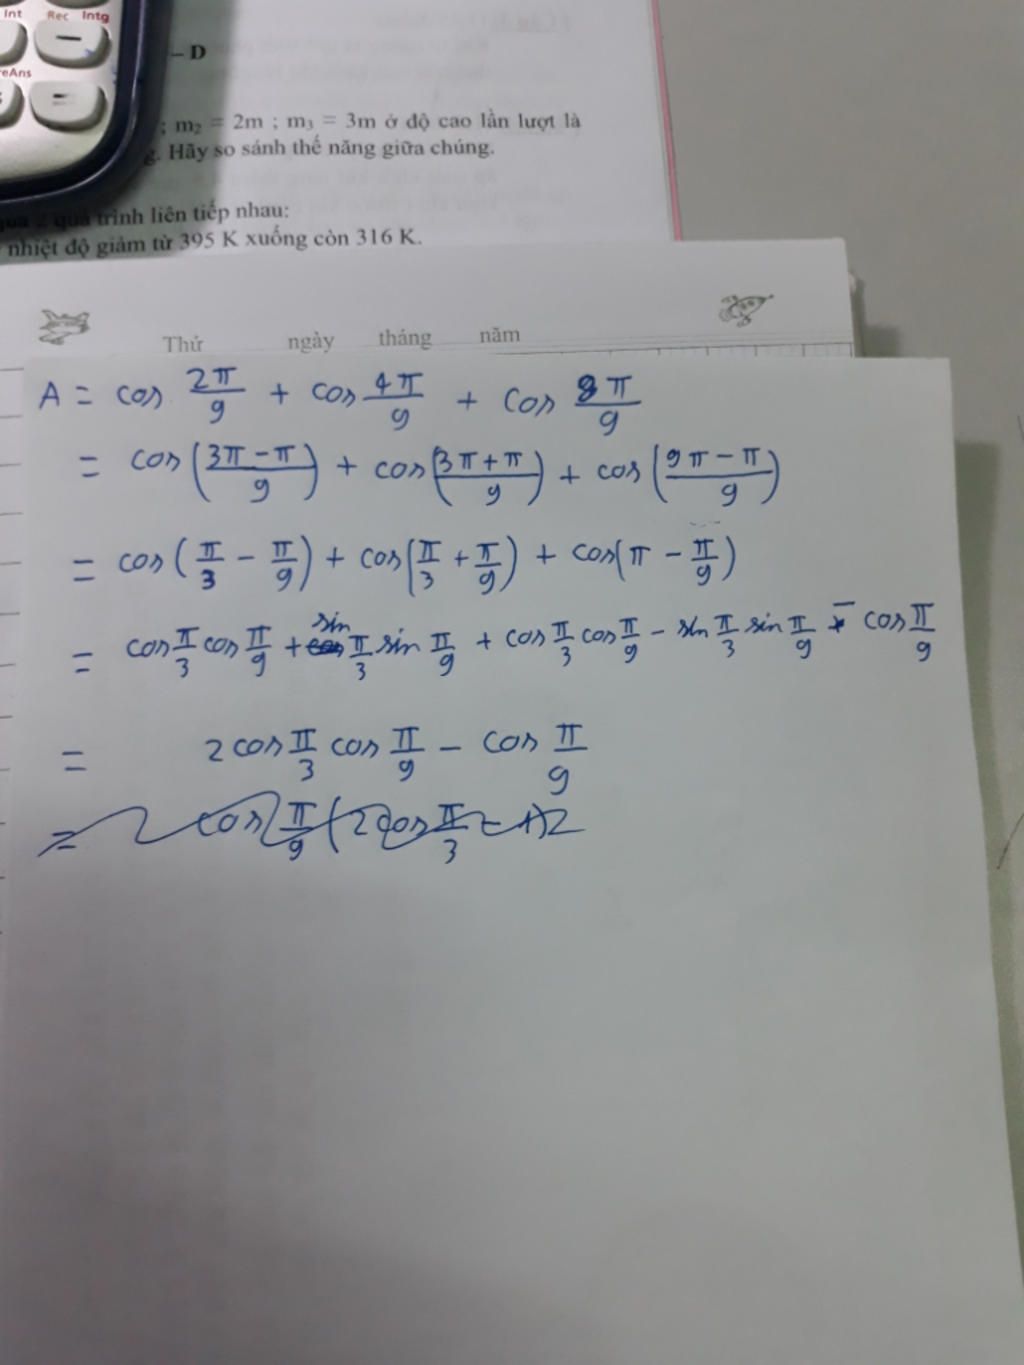 Int Rec Intg
–
=
– D
; m₂ = 2m ; m₃ = 3m ở độ cao lần lượt là
g. Hãy so sánh thế năng giữa chúng.
qua 2 quá trình liên tiếp nhau:
nhiệt độ giảm từ 395 K xuống còn 316 K.
Thứ ngày tháng năm
A = cos 2π/9 + cos 4π/9 + cos 8π/9
= cos(3π-π/9) + cos(3π+π/9) + cos(9π-π/9)
= cos(π/3 - π/9) + cos(π/3 + π/9) + cos(π - π/9)
= cos π/3 cos π/9 + sin π/3 sin π/9 + cos π/3 cos π/9 - sin π/3 sin π/9 - cos π/9
= 2 cos π/3 cos π/9 - cos π/9
= cos π/9 (2 cos π/3 - 1)